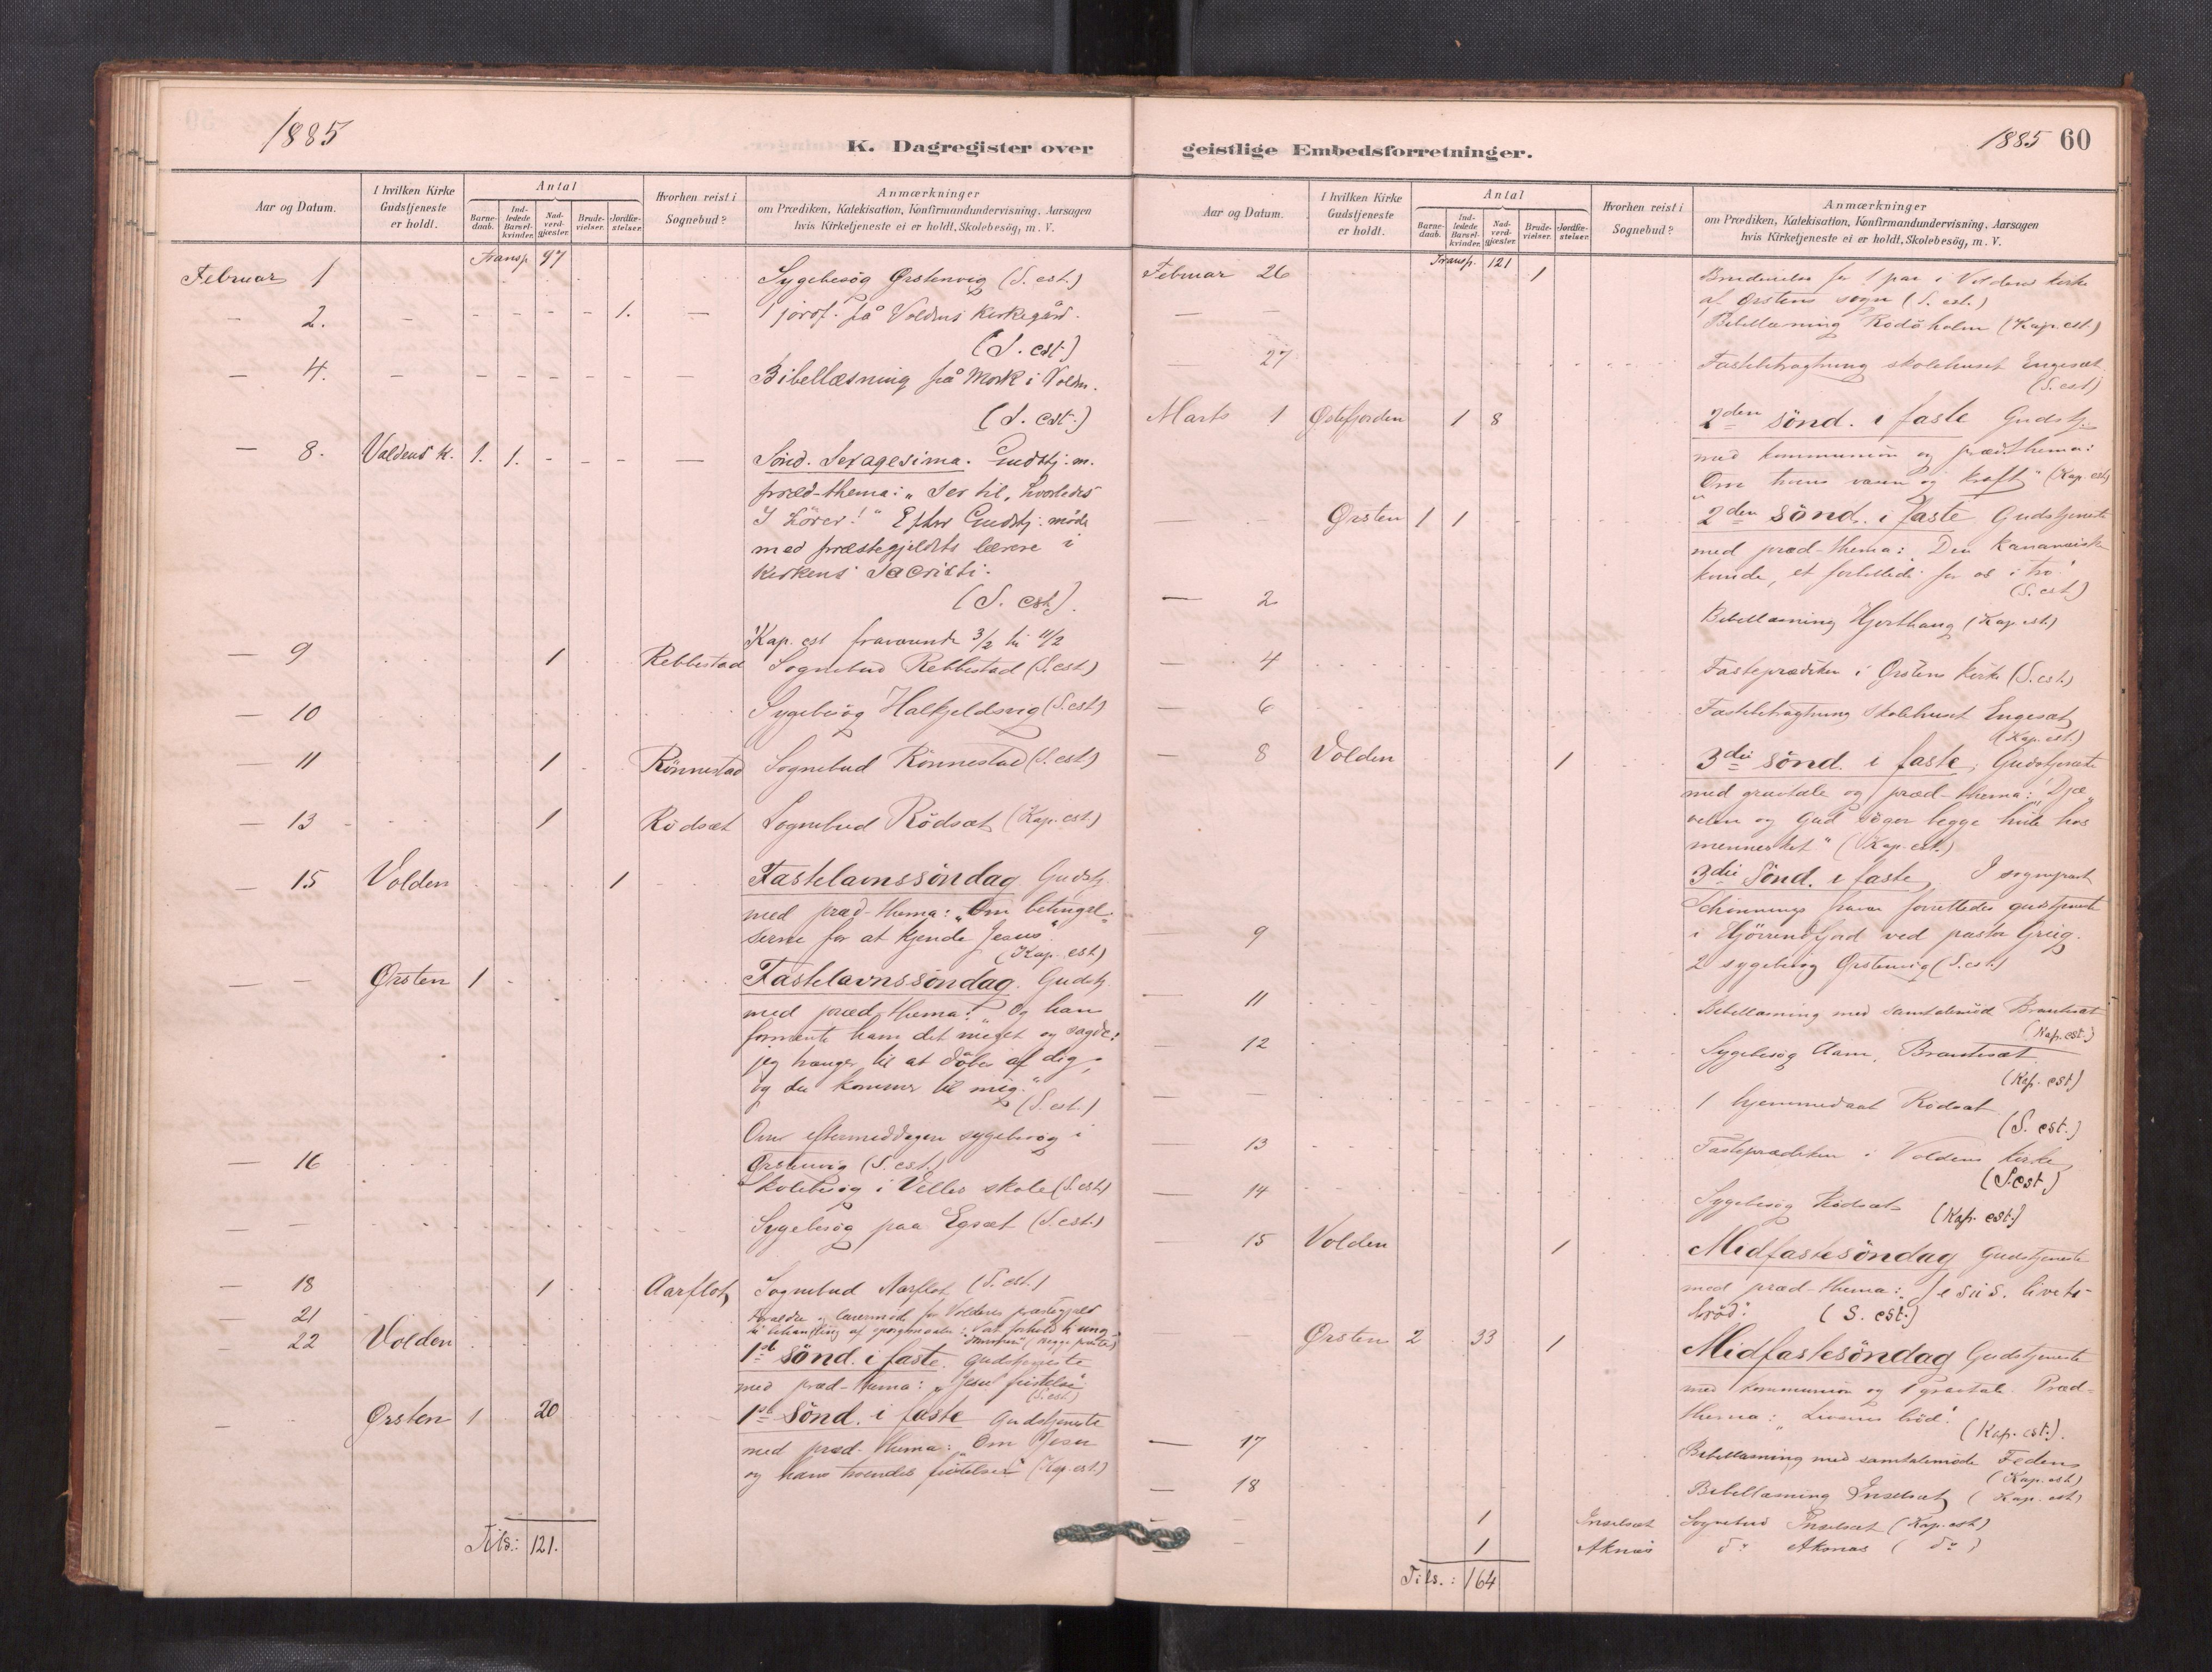 1885
K. Dagregister over
Aar og Datum.
I hvilken Kirke Gudstjeneste er holdt.
Antal
Barnedaab.
Indledede Barselkvinder.
Nadverdgjæster.
Brudevielser.
Jordfæstelser.
Hvorhen reist i Sognebud?
Anmærkninger
om Prædiken, Katekisation, Konfirmandundervisning, Aarsagen
hvis Kirketjeneste ei er holdt, Skolebesög, m. V.
Transp. 97
Februar 1 Sygebesög Ørstenvig (S. est.)
— 2. 1. — 1 jordf. på Voldens Kirkegård.
(S. est.)
— 4. Bibellæsning på Mork i Volden.
(S. est.)
— 8. Voldens k. 1. 1. Sönd. Sexagesima. Gudstj. m.
præd-thema: "Ser til, hvorledes
I hörer!" Efter Gudstj. möde
med præstegjeldets lærere i
Kirkens Sacristi.
(S. est.).
Kap. est fraværende 3/2 til 11/2
— 9 1 Rebbestad Sognebud Rebbestad (S. est.)
— 10 Sygebesög Halkjeldsvig (S. est)
— 11 1 Rönnestad Sognebud Rönnestad (S. est)
— 13 1 Rödsæt Sognebud Rödsæt (Kap. est.)
— 15 Volden 1 Fastelavnssöndag Gudstj.
med præd-thema: "Om betingel-
serne for at kjende Jesus"
(Kap. est)
— — Ørsten 1 Fastelavnssöndag. Gudstj.
med præd-thema: "Og han
formente ham det meget og sagde:
jeg trænger til at döbes af dig,
og du kommer til mig."
(S. est.)
Om eftermeddagen sygebesög i
Ørstenvig (S. est.)
— 16 Skolebesög i Velles skole (S. est)
— — Sygebesög paa Egsæt (S. est.)
— 18 1 Aarflot Sognebud Aarflot (S. est.)
— 21 Forældre og lærermöde for Voldens præstegjeld
til behandling af spörgsmaalet: "Vort forhold til ung-
dommen" (begge præster)
— 22 Volden 1ste Sönd. i faste. Gudstjeneste
med præd-thema: "Jesu fristelse"
(S. est)
— Ørsten 1 20 1ste Sönd. i faste Gudstjeneste
med præd-thema: "Om Jesu
og hans troendes fristelser" (Kap. est.)
Tils.: 121.
geistlige Embedsforretninger.
1885 60
Aar og Datum.
I hvilken Kirke Gudstjeneste er holdt.
Antal
Barnedaab.
Indledede Barselkvinder.
Nadverdgjæster.
Brudevielser.
Jordfæstelser.
Hvorhen reist i Sognebud?
Anmærkninger
om Prædiken, Katekisation, Konfirmandundervisning, Aarsagen
hvis Kirketjeneste ei er holdt, Skolebesög, m. V.
Transp. 121
Februar 26 1 Brudevielse for 1 par i Voldens kirke
af Ørstens sogn (S. est.)
— — Bibellæsning Rödöholm (Kap. est.)
— 27 Fastebetragtning skolehuset Engesæt
(S. est)
Marts 1 Østefjorden 1 8 2den sönd. i faste Gudstj.
med kommunion og præd-thema:
"Om troens væsen og kraft" (Kap. est)
— — Ørsten 1 1 2den sönd. i faste Gudstjeneste
med præd-thema: Den Kananæiske
kvinde, et forbillede for os i tro!
(S. est)
— 2 Bibellæsning Hjorthaug (Kap est.)
— 4 Fasteprædiken i Ørstens kirke (S. est.)
— 6 Fastebetragtning Skolehuset Engesæt
(Kap. est.)
— 8 Volden 1 3die sönd. i faste, Gudstjeneste
med gravtale og præd-thema: "Djæ-
velen og Gud söger begge hvile hos
mennesket" (Kap. est.)
3die Sönd. i faste,
forrettedes gudstjeneste
i Hjörendfjord ved pastor Greig.
— 9 2 sygebesög Ørstenvig (S. est.)
— 11 Bibellæsning med samtalemöde Brautesæt
(Kap. est.)
— 12 Sygebesög Aam, Brautesæt
(Kap. est)
1 hjemmedaab Rödsæt
(S. est.)
— 13 Fasteprædiken i Voldens kirke
(S. est.)
— 14 Sygebesög Rödsæt (Kap. est.)
— 15 Volden 1 Midfastesöndag Gudstjeneste
med præd-thema: Jesus. livets
bröd." (S. est.)
Ørsten 2 33 1 Midfastesöndag Gudstjeneste
med kommunion og 1 gravtale. Præd-
thema: "Livsens bröd."
(Kap. est.).
— 17 Bibellæsning med samtalemöde Fedens
(Kap. est)
— 18 Bibellæsning Inselsæt (Kap. est)
— — 1 Inselsæt Sognebud Inselsæt (Kap. est)
— — 1 Aknæs do Aknæs (do)
Tils.: 164